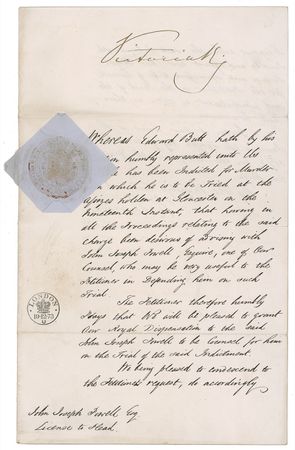 Victoria Rg
Whereas Edward Butt hath by his
humbly represented unto Us
has been Indicted for Murder
which he is to be Tried at the
Assizes holden at Gloucester on the
Nineteenth Instant, that having in
all the Proceedings relating to the said
charge been desirous of advising with
John Joseph Powell, Esquire, one of Our
Counsel, who may be very useful to the
Petitioner in Defending him on such
Trial
The Petitioner therefore humbly
Prays that We will be pleased to grant
Our Royal Dispensation to the said
John Joseph Powell to be Counsel for him
on the Trial of the said Indictment.
We being pleased to condescend to
the Petitioner's request, do accordingly
LONDON
73
John Joseph Powell Esq
License to Plead.